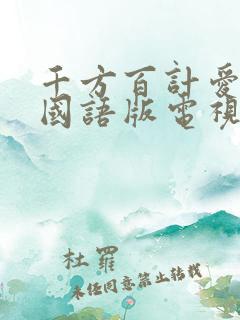 千方百計愛
國語版電視
杜羅
未經同意禁止轉載